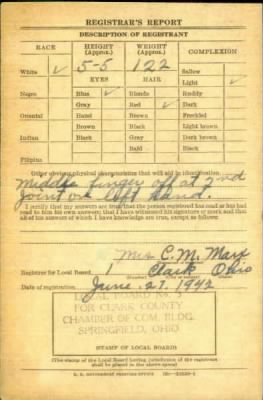 REGISTRAR'S REPORT
DESCRIPTION OF REGISTRANT
RACE HEIGHT (Approx.) WEIGHT (Approx.) COMPLEXION
White ✓ 5-5 122 Sallow
EYES HAIR Light ✓
Negro Blue ✓ Blonde ✓ Ruddy
Gray Red Dark
Oriental Hazel Brown Freckled
Brown Black Light brown
Indian Black Gray Dark brown
Bald Black
Filipino
Other obvious physical characteristics that will aid in identification
Middle finger off at 2nd
joint on left hand.
I certify that my answers are true; that the person registered has read or has had
read to him his own answers; that I have witnessed his signature or mark and that
all of his answers of which I have knowledge are true, except as follows:
Mrs C. M. Marx
Registrar for Local Board 1 Clark Ohio
Date of registration June 27, 1942
LOCAL BOARD NO. 3
FOR CLARK COUNTY
CHAMBER OF COM. BLDG.
SPRINGFIELD, OHIO
(STAMP OF LOCAL BOARD)
(The stamp of the Local Board having jurisdiction of the registrant
shall be placed in the above space.)
U. S. GOVERNMENT PRINTING OFFICE